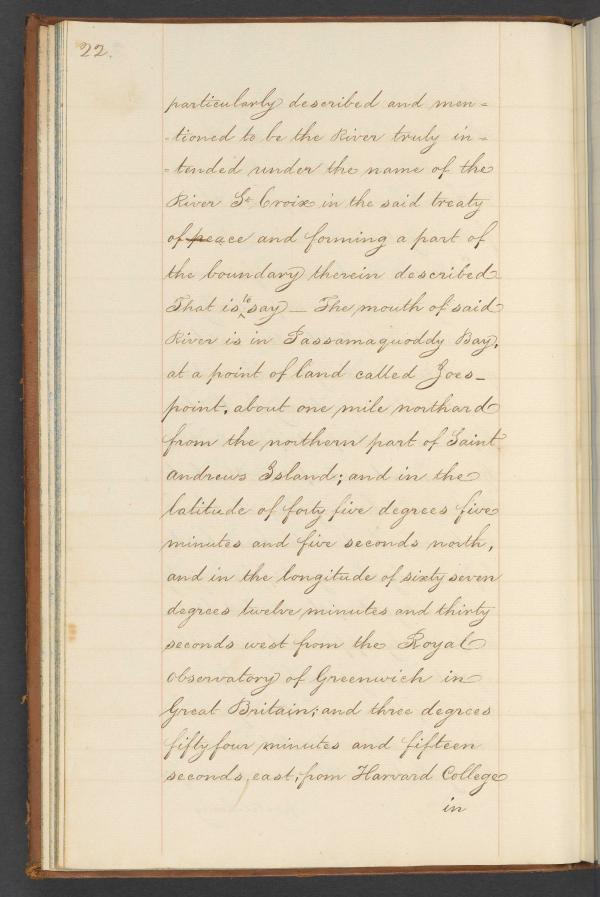 22.
particularly described and men=
=tioned to be the River truly in=
=tended under the name of the
River St. Croix in the said treaty
of peace and forming a part of
the boundary therein described
That is to say – The mouth of said
River is in Passamaquoddy Bay,
at a point of land called Joes–
point, about one mile northard
from the northern part of Saint
Andrews Island; and in the
latitude of forty five degrees five
minutes and five seconds north,
and in the longitude of sixty seven
degrees twelve minutes and thirty
seconds west from the Royal
Observatory of Greenwich in
Great Britain; and three degrees
fifty four minutes and fifteen
seconds, east, from Harvard College
in